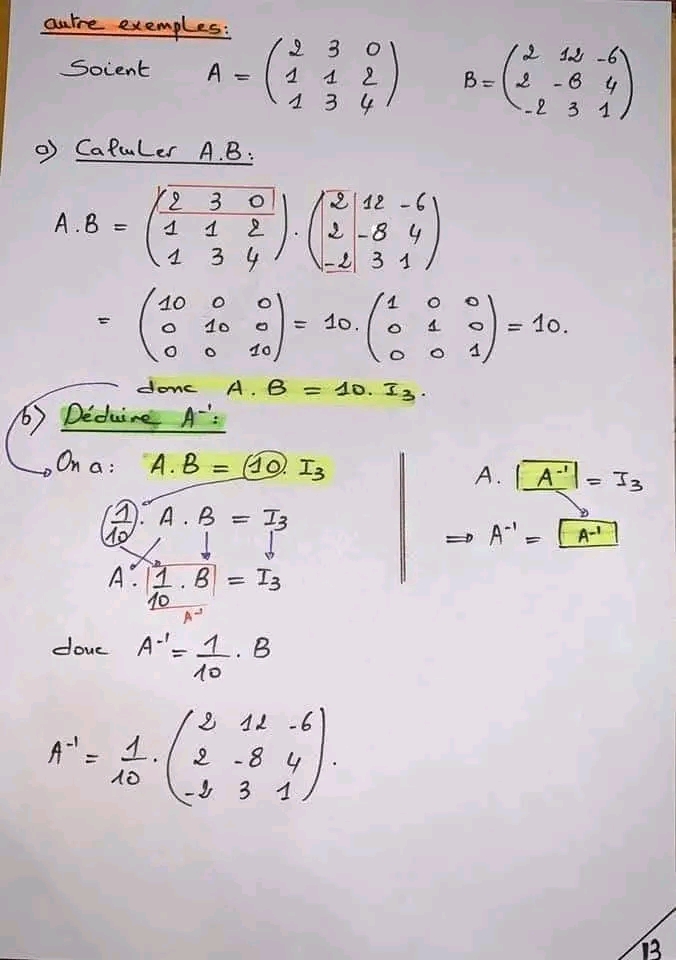 autre exemples:
Soient A = ( 2 3 0 ; 1 1 2 ; 1 3 4 ) B = ( 2 12 -6 ; 2 -8 4 ; -2 3 1 )
a) Calculer A.B:
A.B = ( 2 3 0 ; 1 1 2 ; 1 3 4 ) . ( 2 12 -6 ; 2 -8 4 ; -2 3 1 )
= ( 10 0 0 ; 0 10 0 ; 0 0 10 ) = 10. ( 1 0 0 ; 0 1 0 ; 0 0 1 ) = 10.
donc A.B = 10. I₃.
b) Déduire A⁻¹:
On a: A.B = 10. I₃
1/10 . A.B = I₃
A. 1/10 . B = I₃
A⁻¹
donc A⁻¹ = 1/10 . B
A⁻¹ = 1/10 . ( 2 12 -6 ; 2 -8 4 ; -2 3 1 ).
A. A⁻¹ = I₃
⟹ A⁻¹ = A⁻¹
13